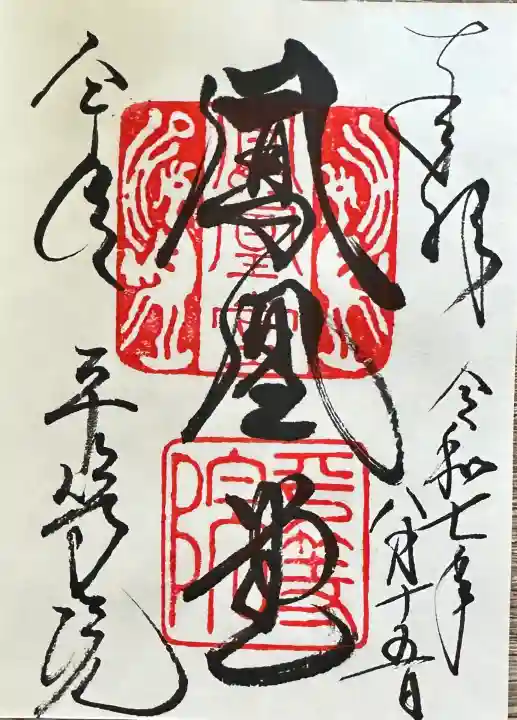 奉拝
令和七年
八月十五日
鳳凰堂
平等院
鳳凰堂
平等院